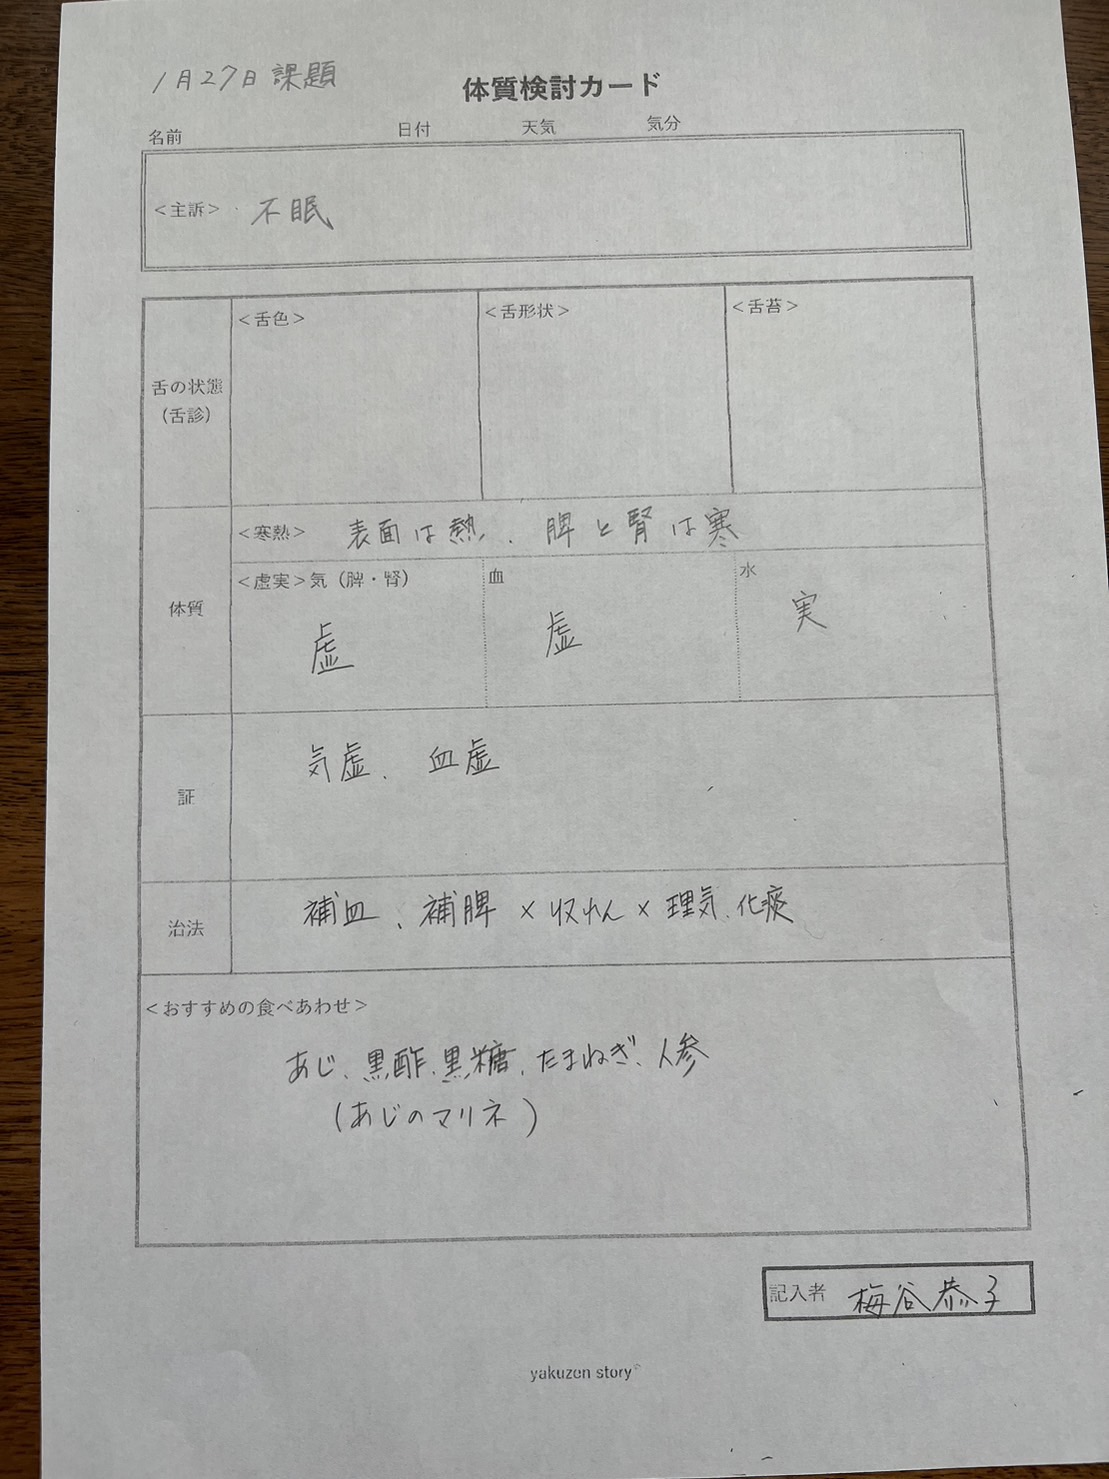 1月27日 課題
体質検討カード
名前 日付 天気 気分
<主訴> 不眠
舌の状態
(舌診)
<舌色> <舌形状> <舌苔>
体質
<寒熱> 表面は熱、脾と腎は寒
<虚実>気(脾・腎) 血 水
虚 虚 実
証
気虚、血虚
治法
補血、補脾×収れん×理気、化痰
<おすすめの食べあわせ>
あじ、黒酢、黒糖、たまねぎ、人参
(あじのマリネ)
記入者 梅谷恭子
yakuzen story©